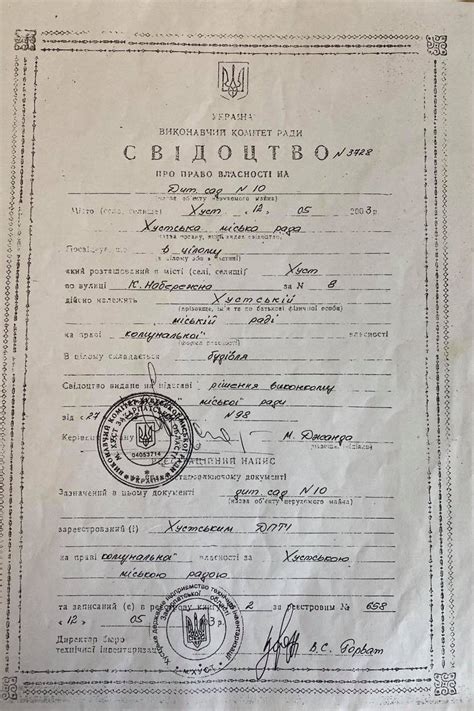 УКРАЇНА
ВИКОНАВЧИЙ КОМІТЕТ РАДИ
СВІДОЦТВО N 3728
ПРО ПРАВО ВЛАСНОСТІ НА
Дит. сад N 10
назва об'єкту нерухомого майна)
Місто (село, селище) Хуст 12 05 2003 р.
Хустська міська рада
Посвідчує, що в цілому
в цілому або в частині)
який розташований в місті (селі, селищі) Хуст
по вулиці К. Набережна за N 8
дійсно належить Хустській
(прізвище, ім'я та по батькові фізичної особи)
міській раді
на праві комунальної власності
(форма власності)
В цілому складається будівля
Свідоцтво видане на підставі рішення виконкому
міської ради
від «27 N 98
Керівник М. Джанда
04053714
УКРАЇНА
РЕЄСТРАЦІЙНИЙ НАПИС
на правовстановлюючому документі
Зазначений в цьому документі дит. сад N 10
(назва об'єкту нерухомого майна)
зареєстрований (і) Хустським ДПТІ
на праві комунальна власності за Хустською
міською радою
та записаний (є) в реєстрову книгу 2 за реєстровим № 658
«12» 05 3 р.
Директор бюро
технічної інвентаризації В.С. Горват
м.ХУСТ